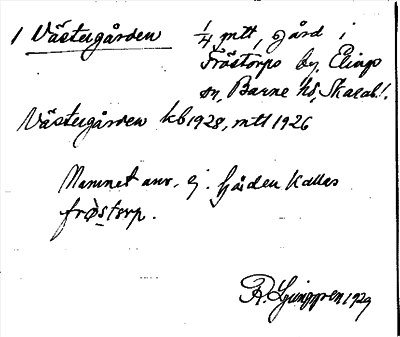 1 Västergården 1/4 mtt, gård i
Fröstorps by, Elings
sn, Barne hd, Skarab. l.
Västergården kb 1928, mtl 1926
Namnet anv. ej. Gården kallas
frøstorp.
R. Ljunggren 1929